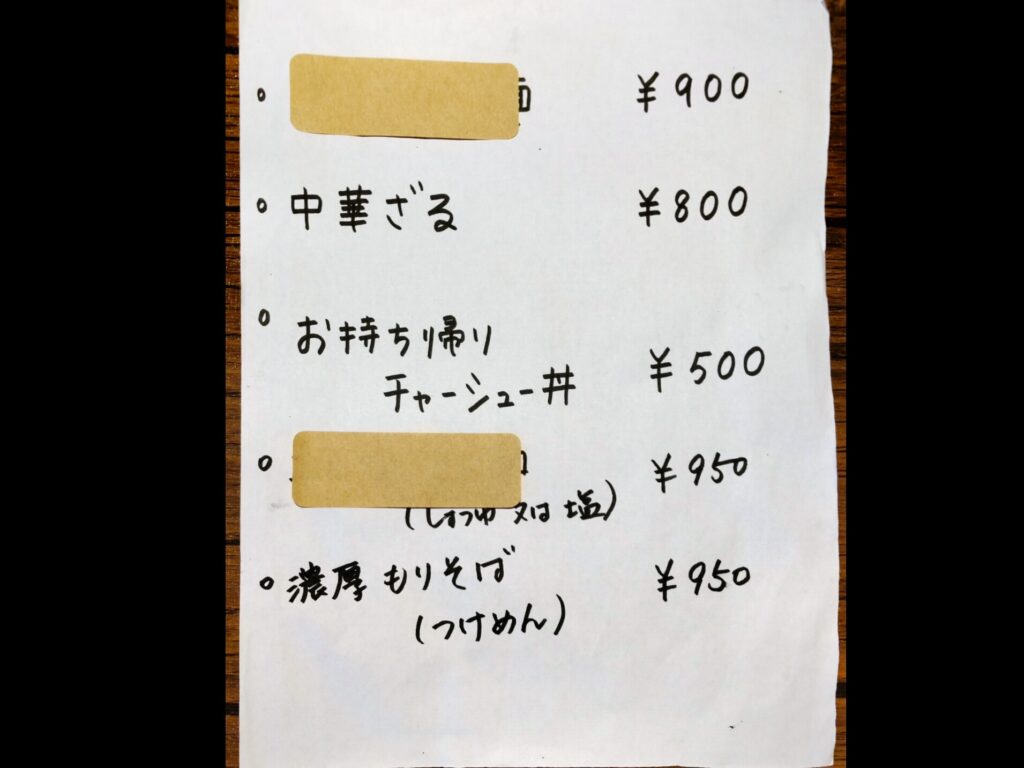 ¥900
中華ざる ¥800
お持ち帰り
チャーシュー丼 ¥500
¥950
(しょうゆ 又は 塩)
濃厚 もりそば ¥950
(つけめん)